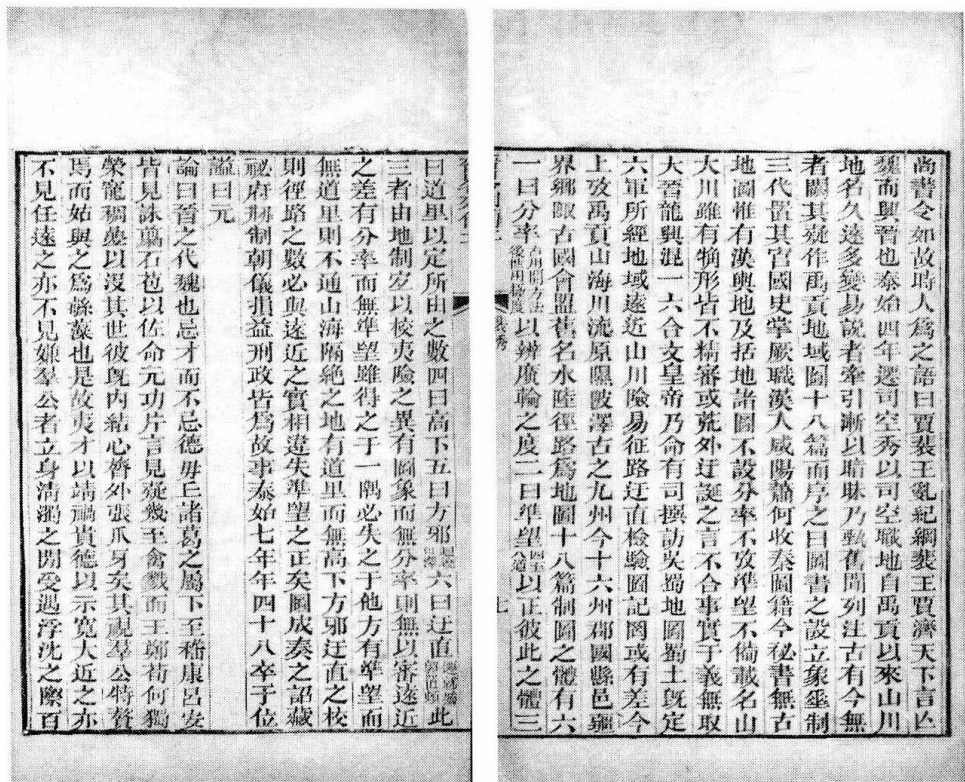 尚書令如故時人爲之語曰賈裴王亂紀綱裴王賈濟天下言亾
魏而興晉也泰始四年遷司空秀以司空職地自禹貢以來山川
地名久遠多變易說者牽引漸以暗昧乃甄舊聞列注古有今無
者闕其疑作禹貢地域圖十八篇而序之曰圖書之設立象垂制
三代置其官國史掌厥職漢人咸陽蕭何收秦圖籍今秘書無古
地圖惟有漢輿地及括地諸圖不設分率不攷準望不備載名山
大川雖有觕形皆不精審或荒外迂誕之言不合事實于義無取
大晉龍興混一六合文皇帝乃命有司撰訪吳蜀地圖蜀土既定
六軍所經地域遠近山川險易征路迂直檢驗圖記罔或有差今
上攷禹貢山海川流原隰陂澤古之九州今十六州郡國縣邑疆
界鄉陬古國會盟舊名水陸徑路爲地圖十八篇制圖之體有六
一曰分率以辨廣輪之度二曰準望以正彼此之體三
裴秀
七
曰道里以定所由之數四曰高下五曰方邪六曰迂直此
三者由地制宜以校夷險之異有圖象而無分率則無以審遠近
之差有分率而無準望雖得之于一隅必失之于他方有準望而
無道里則不通山海隔絶之地有道里而無高下方邪迂直之校
則徑路之數必與遠近之實相違失準望之正矣圖成奏之詔藏
祕府刱制朝儀損益刑政皆爲故事泰始七年年四十八卒于位
謚曰元
論曰晉之代魏也忌才而不忌德毋丘諸葛之屬下至嵇康呂安
皆見誅翦石苞以佐命元功片言見疑幾至禽戮而王鄭荀何獨
榮寵稠疊以沒其世彼旣内結心膂外張爪牙矣其視羣公特贅
焉而姑與之爲緣藻也是故夷才以靖禍貴德以示寬大近之亦
不見任遠之亦不見嫌羣公者立身淸濁之閒受遇浮沈之際百